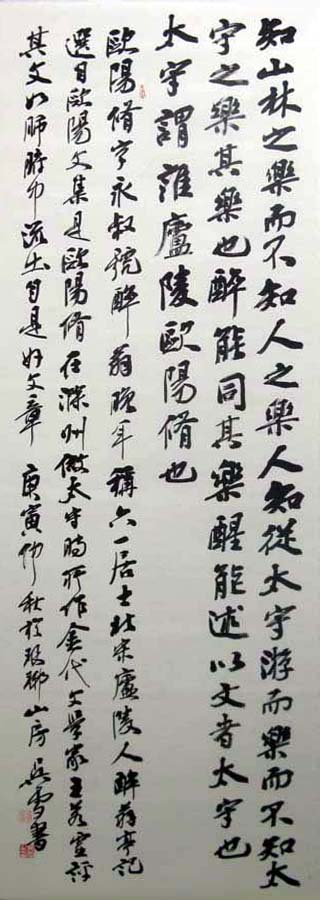 知山林之樂而不知人之樂人知從太守游而樂而不知太
守之樂其樂也醉能同其樂醒能述以文者太守也
太守謂誰廬陵歐陽脩也
歐陽脩字永叔號醉翁晚年稱六一居士北宋廬陵人醉翁亭記
選自歐陽文集是歐陽脩在滁州做太守時所作金代文學家王若虛評
其文以肺腑中流出自是好文章 庚寅仲秋於琅琊山房 吳雪書